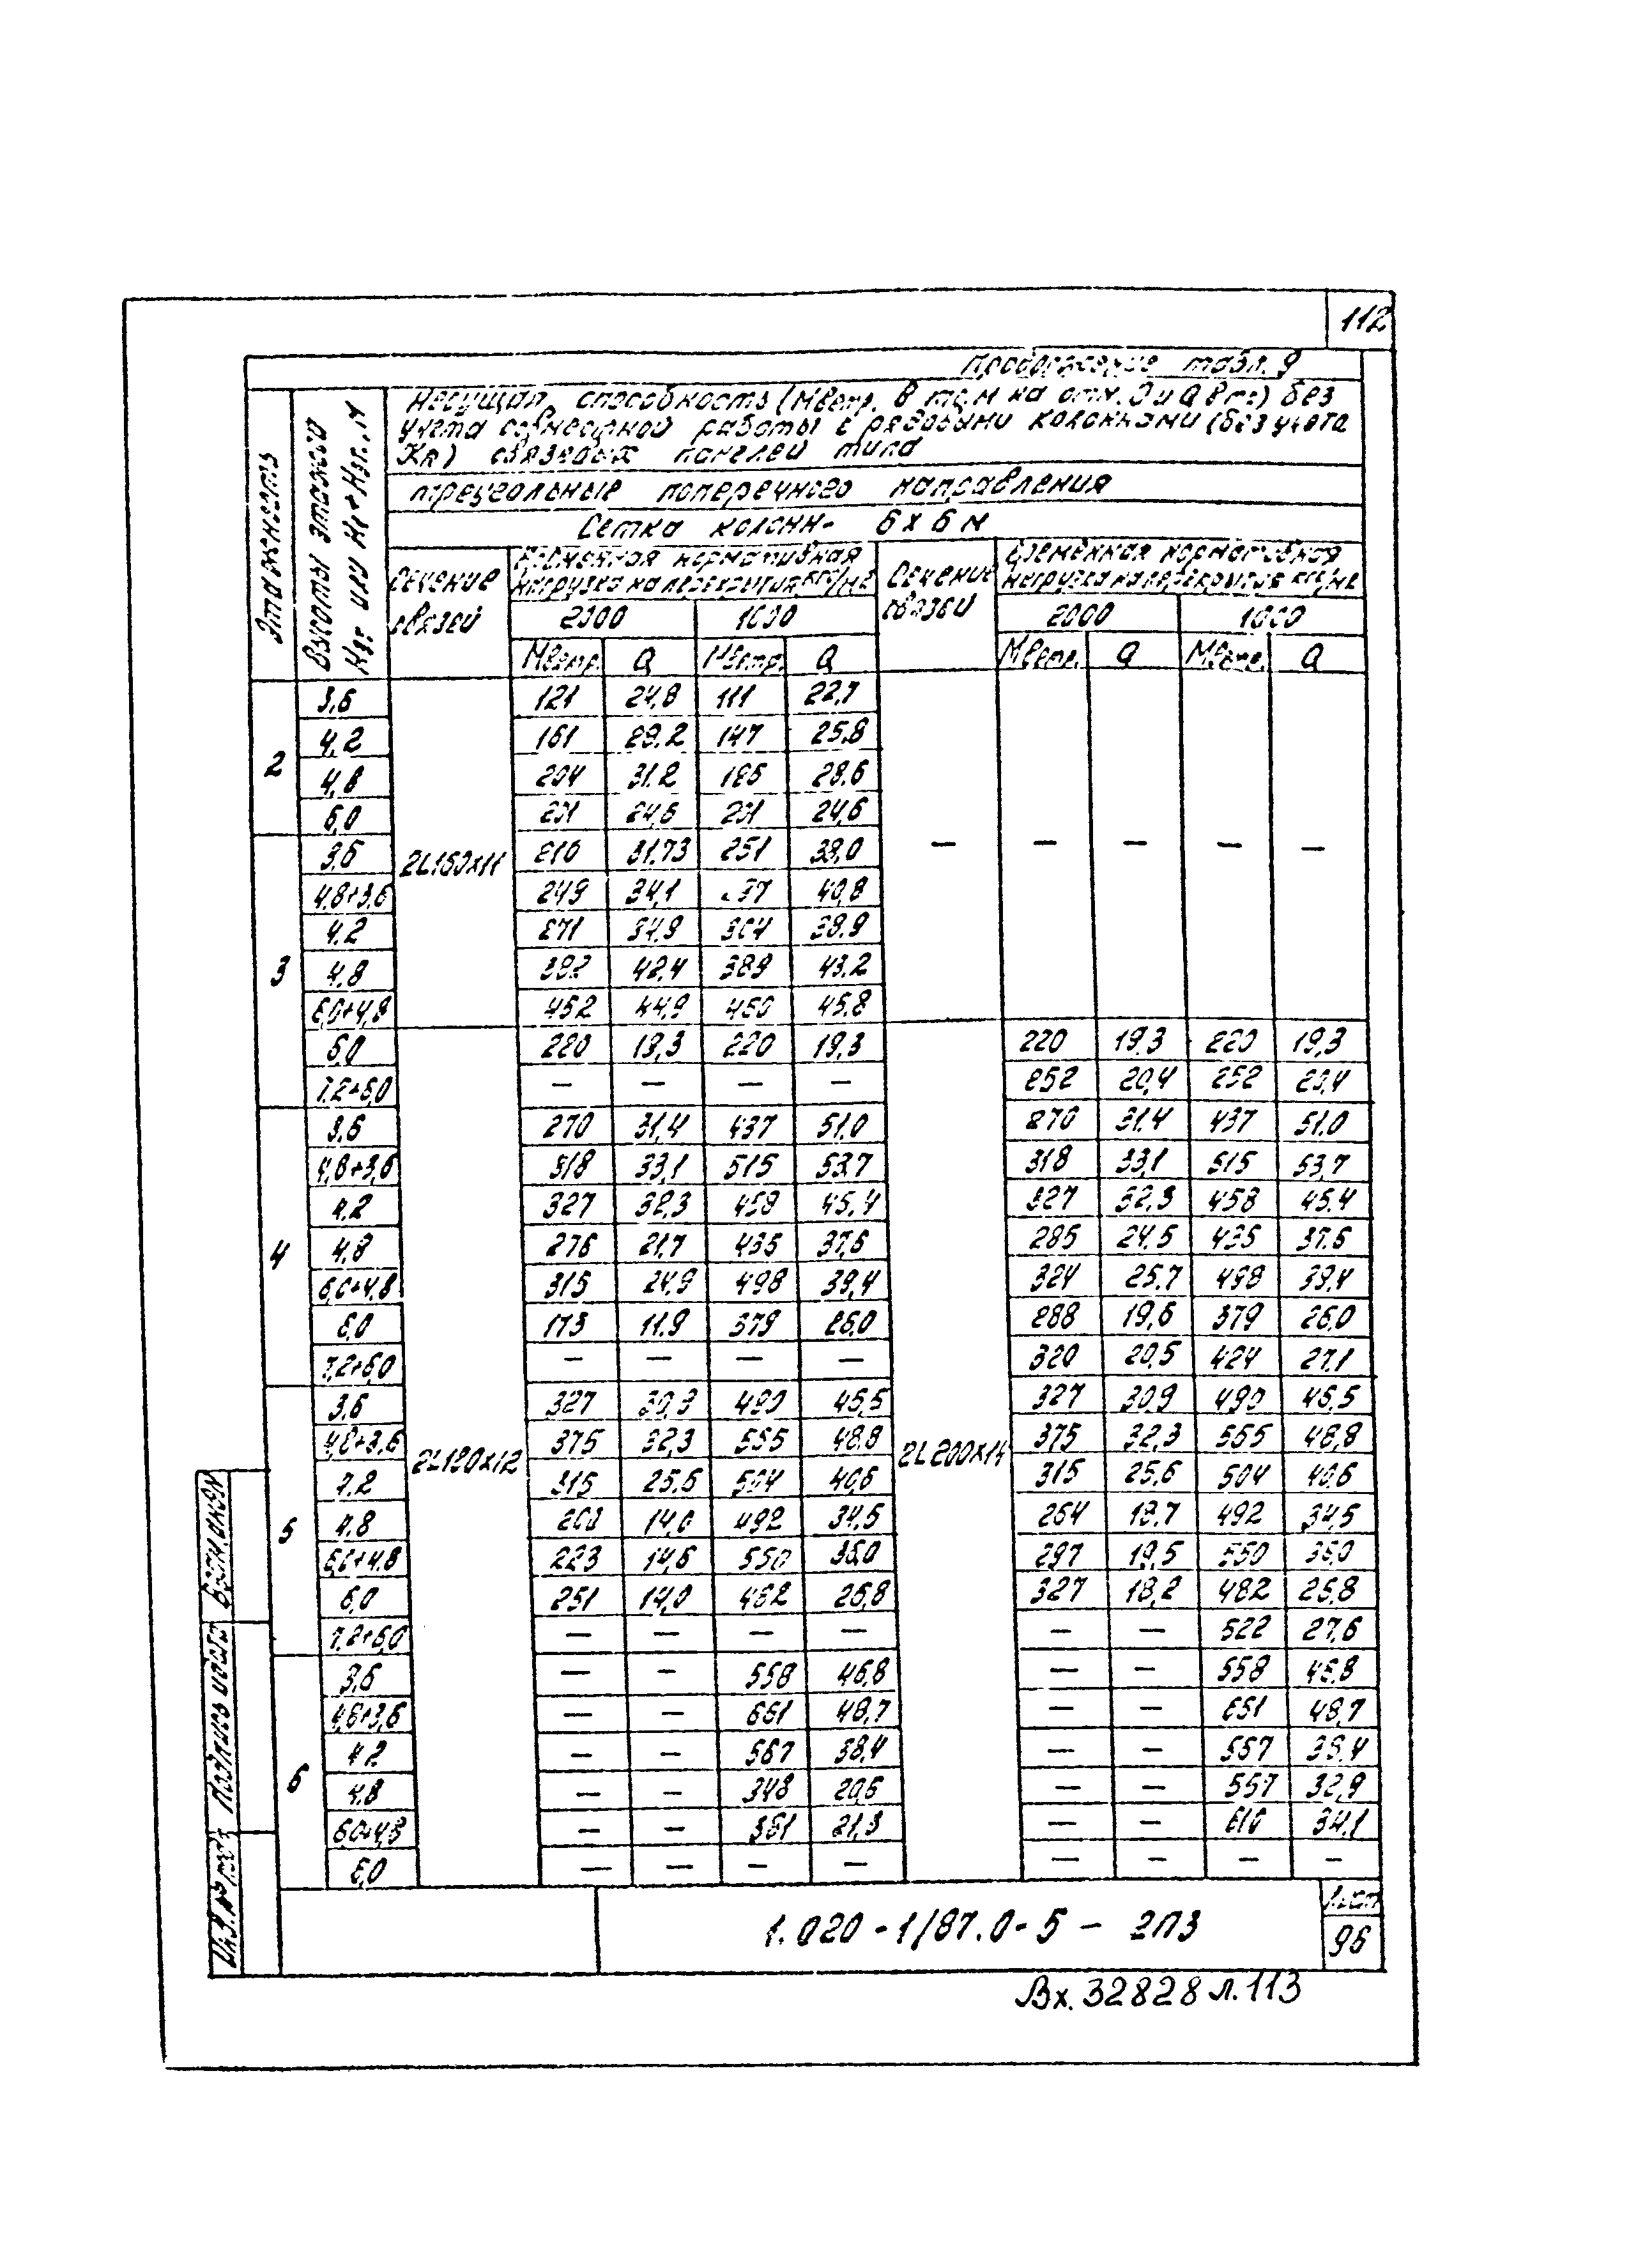 112
Продолжение табл. 9
Этажность
Высоты этажей Нэт или Н1+Нэт, м
Несущая способность (Мветр. в тс.м на отм. 0 и Q в тс) без
учёта совместной работы с рядовыми колоннами (без учета
Кп) связевых панелей типа
треугольные поперечного направления
Сетка колонн - 6х6м
Сечение связей | Временная нормативная нагрузка на перекрытия кгс/м2 | Сечение связей | Временная нормативная нагрузка на перекрытия кгс/м2
2000 | 1000 | 2000 | 1000
Мветр. | Q | Мветр. | Q | Мветр. | Q | Мветр. | Q
2 | 3,6 | 121 | 24,8 | 111 | 22,7
4,2 | 161 | 29.2 | 147 | 25,8
4,8 | 204 | 31.2 | 186 | 28.6
6,0 | 231 | 24,6 | 231 | 24,6
2L160х11 | — | — | — | — | —
3 | 3,6 | 210 | 31.73 | 251 | 38,0
4,8+3,6 | 249 | 34,1 | 40,8
4,2 | 271 | 34,9 | 304 | 38.9
4,8 | 382 | 42,4 | 389 | 43.2
6,0+4,8 | 452 | 44,9 | 460 | 45,8
6,0 | 220 | 19,3 | 220 | 19,3 | 220 | 19.3 | 220 | 19,3
7.2+6,0 | — | — | — | — | 252 | 20,4 | 252 | 20,4
4 | 3,6 | 270 | 31,4 | 437 | 51,0 | 270 | 31.4 | 437 | 51.0
4,8+3,6 | 318 | 33,1 | 515 | 53.7 | 318 | 33,1 | 515 | 53,7
4.2 | 327 | 32,3 | 458 | 45,4 | 327 | 32,3 | 458 | 45.4
4,8 | 276 | 21,7 | 435 | 37,6 | 285 | 24.5 | 435 | 37.6
6,0+4,8 | 315 | 24,9 | 498 | 39,4 | 324 | 25.7 | 498 | 39,4
6,0 | 173 | 11.9 | 379 | 26,0 | 288 | 19,6 | 379 | 26,0
7,2+6,0 | — | — | — | — | 320 | 20,5 | 424 | 27,1
5 | 3,6 | 327 | 30,9 | 490 | 46,5 | 327 | 30,9 | 490 | 46,5
4,8+3,6 | 375 | 32,3 | 555 | 48,8 | 375 | 32,3 | 555 | 48,8
2L180х12 | 2L200х14
4.2 | 315 | 25,6 | 504 | 40,6 | 315 | 25,6 | 504 | 40,6
4,8 | 14,0 | 492 | 34,5 | 264 | 18.7 | 492 | 34,5
6,0+4,8 | 223 | 14,6 | 550 | 36,0 | 297 | 19,5 | 550 | 36,0
6,0 | 251 | 14,0 | 482 | 26,8 | 327 | 18,2 | 482 | 26,8
7,2+6,0 | — | — | — | — | — | — | 522 | 27,6
6 | 3,6 | — | — | 558 | 46,8 | — | — | 558 | 46,8
4,8+3,6 | — | — | 661 | 48,7 | — | — | 48,7
4.2 | — | — | 567 | 38,4 | — | — | 567 | 38,4
4.8 | — | — | 348 | 20,6 | — | — | 557 | 32,9
6,0+4,8 | — | — | 381 | 21,3 | — | — | 610 | 34,1
6,0 | — | — | — | — | — | — | — | —
Взам.инв.№
Подпись и дата
Инв.№ подл
1.020-1/87.0-5 - 2ПЗ
Лист
96
Вх. 32828 л. 113